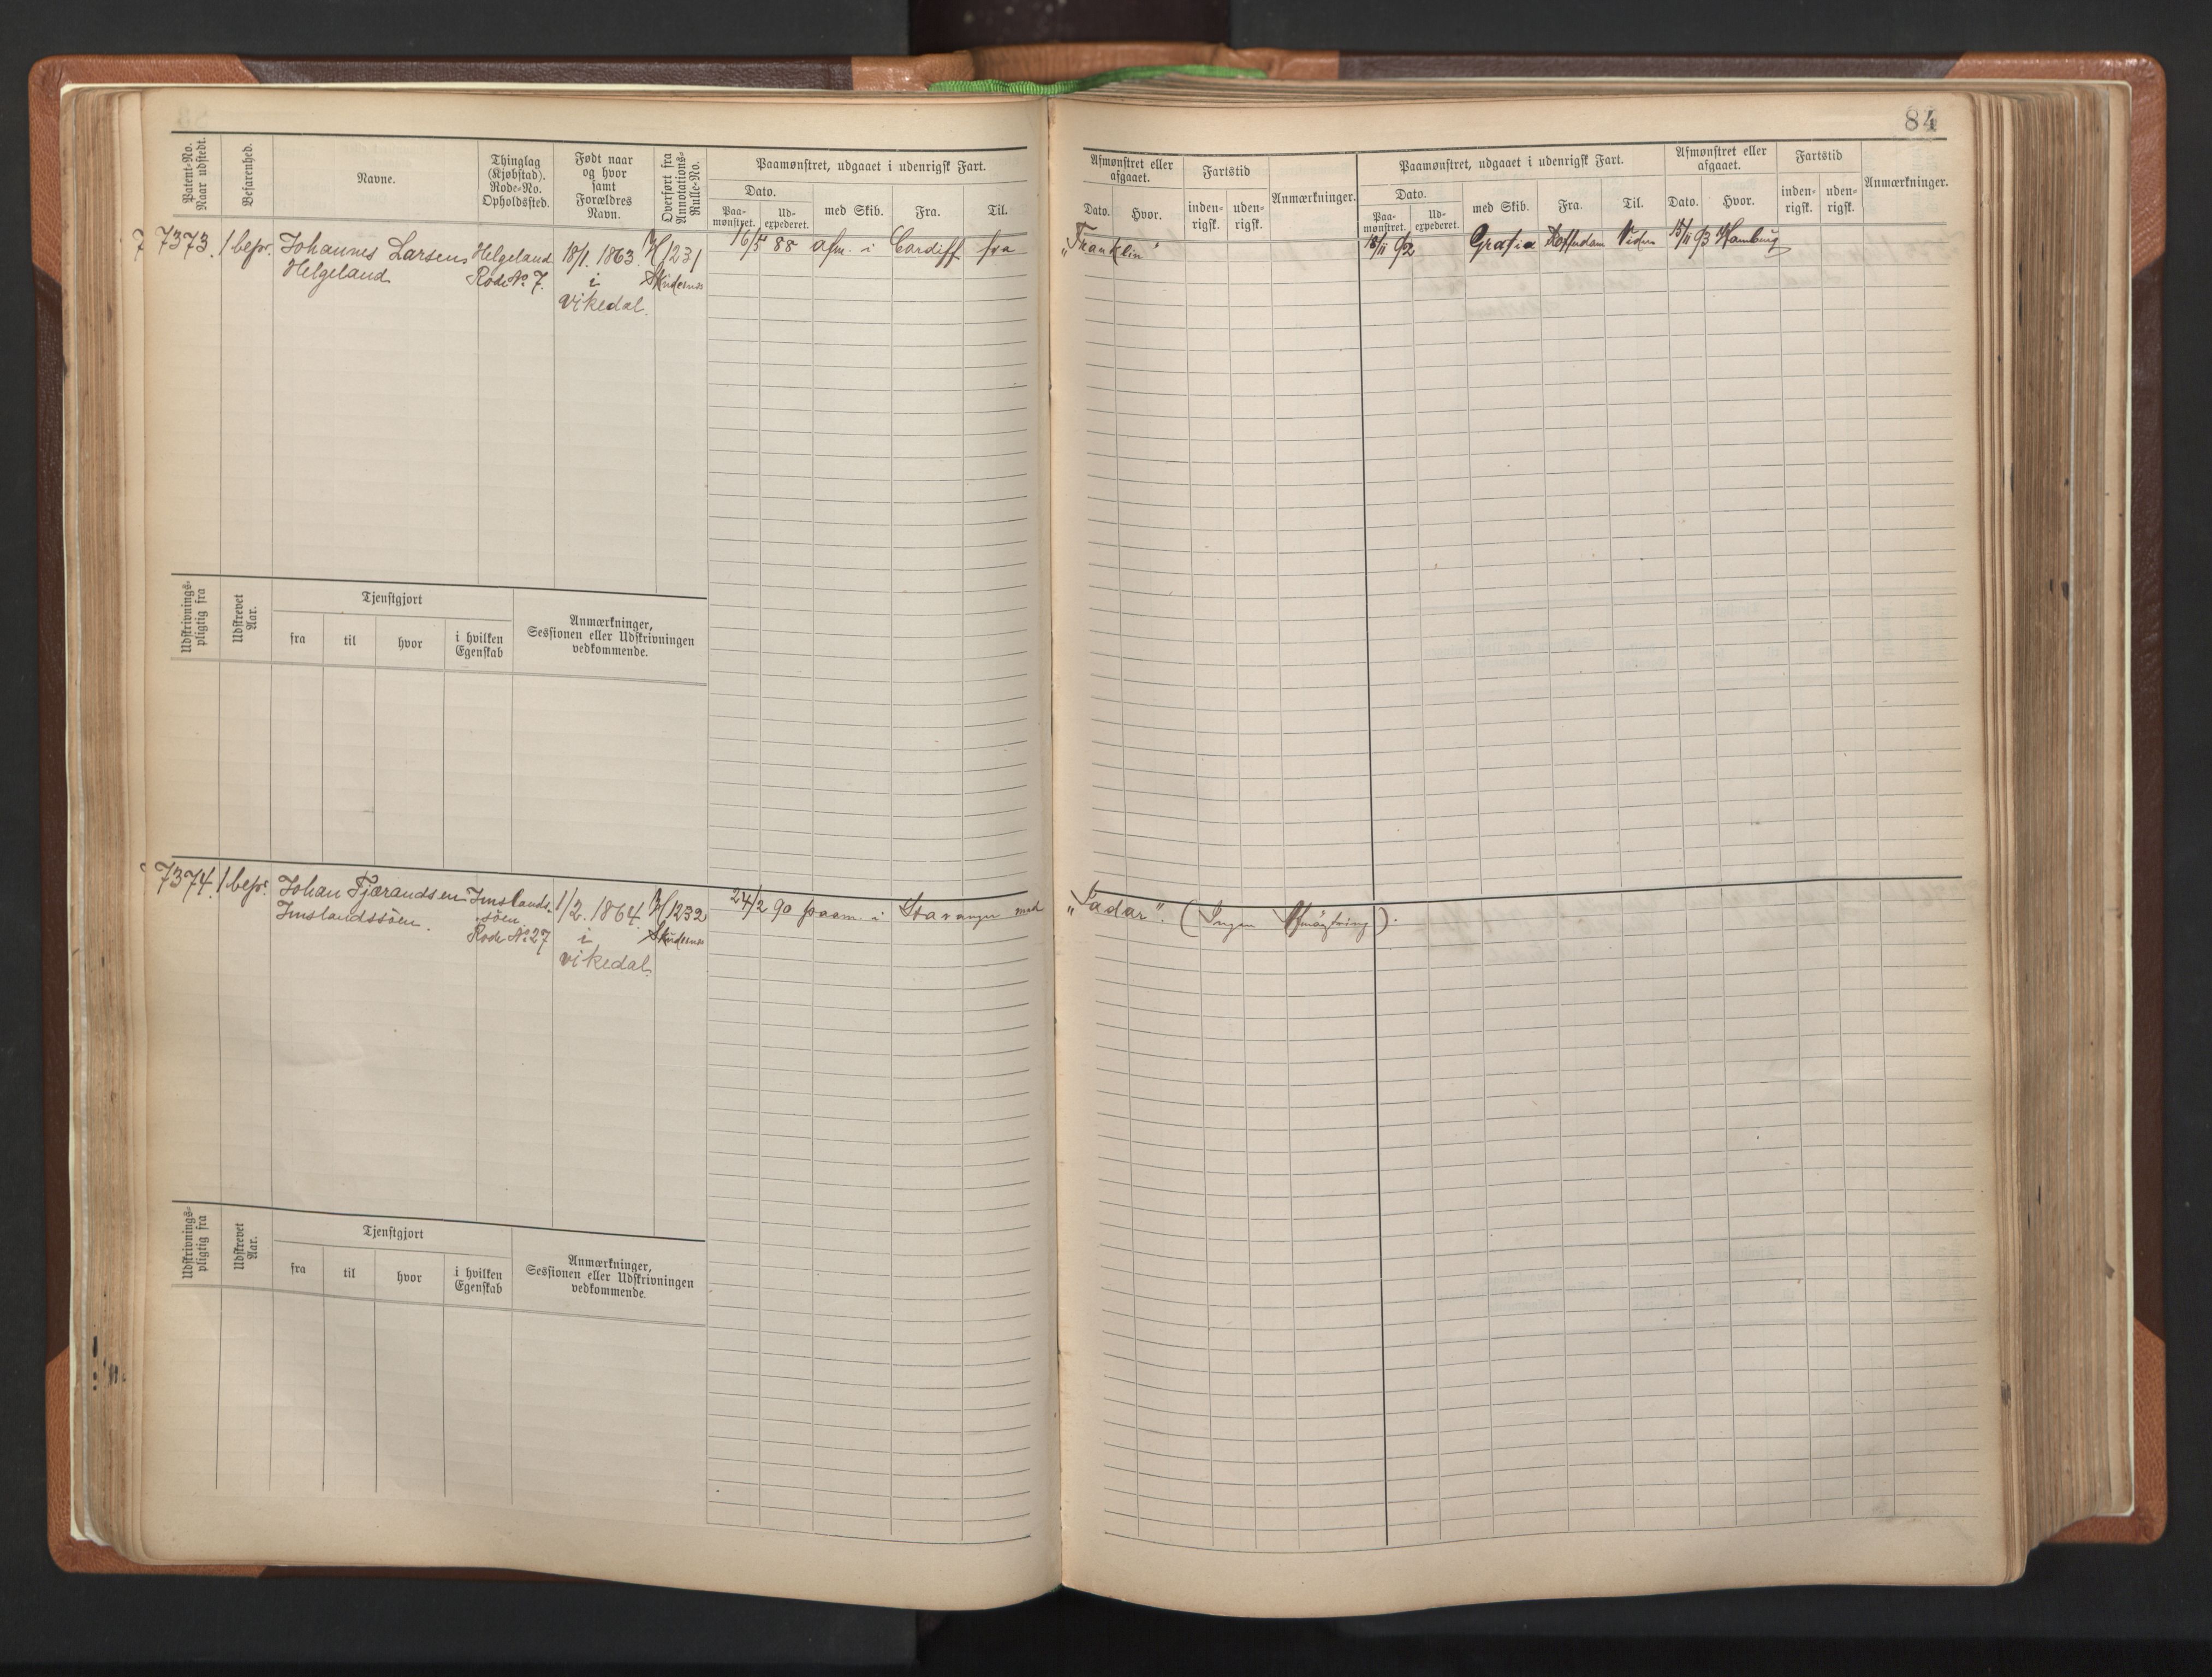 84
Patent-No.
Naar udstedt.
Befarenhed.
Navne.
Thinglag
(Kjøbstad).
Rode-No.
Opholdssted.
Født naar
og hvor
samt
Forældres
Navn.
Overført fra
Annotations-
Rulle-No.
Paamønstret, udgaaet i udenrigsk Fart.
Dato.
Paa-
mønstret.
Ud-
expederet.
med Skib.
Fra.
Til.
Afmønstret eller
afgaaet.
Dato.
Hvor.
Fartstid
inden-
rigsk.
uden-
rigsk.
Anmærkninger.
Paamønstret, udgaaet i udenrigsk Fart.
Dato.
Paa-
mønstret.
Ud-
expederet.
med Skib.
Fra.
Til.
Afmønstret eller
afgaaet.
Dato.
Hvor.
Fartstid
inden-
rigsk.
uden-
rigsk.
Anmærkninger.
7373. 1 bef. Johannes Larsen
Helgeland
Helgeland
Rode No 7.
18/1. 1863.
i
Vikedal.
1231
Skudesnes
16/5 88 afm. i Cardiff fra
„Franklin“
18/11 92 Rotterdam 15/11 93 Hamburg
Udskrivnings-
pligtig fra
Udskrevet
Aar.
Tjenstgjort
fra
til
hvor
i hvilken
Egenskab
Anmærkninger,
Sessionen eller Udskrivningen
vedkommende.
7374. 1 bef. Johan Fjærandsen
Imslandssöen.
Imslands-
söen
Rode No 27
1/2. 1864.
i
Vikedal.
1232
Skudesnes
24/2 90 paam. i Stavanger med
„Sadar“. (Ingen Afmønstring).
Udskrivnings-
pligtig fra
Udskrevet
Aar.
Tjenstgjort
fra
til
hvor
i hvilken
Egenskab
Anmærkninger,
Sessionen eller Udskrivningen
vedkommende.